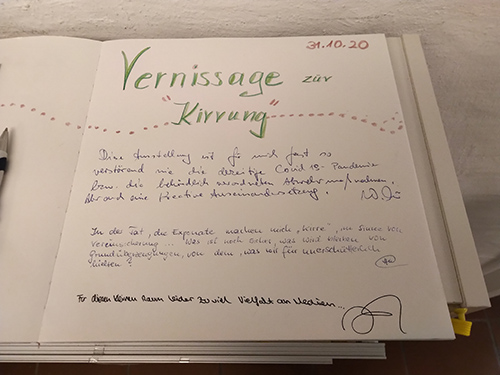 31.10.20
Vernissage zur
"Kirrung"
Diese Ausstellung ist für mich fast so
verstörend wie die derzeitige Covid 19-Pandemie
bzw. die behördlich verordneten Abwehrmaßnahmen.
Aber auch eine kreative Auseinandersetzung.
In der Tat, die Exponate machen mich „kirre", im Sinne von
Verunsicherung ... Was ist noch sicher, was wird bleiben von
Grundüberzeugungen, von dem, was wir für unerschütterlich
hielten?
Für diesen kleinen Raum leider zu viel Vielfalt an Medien...